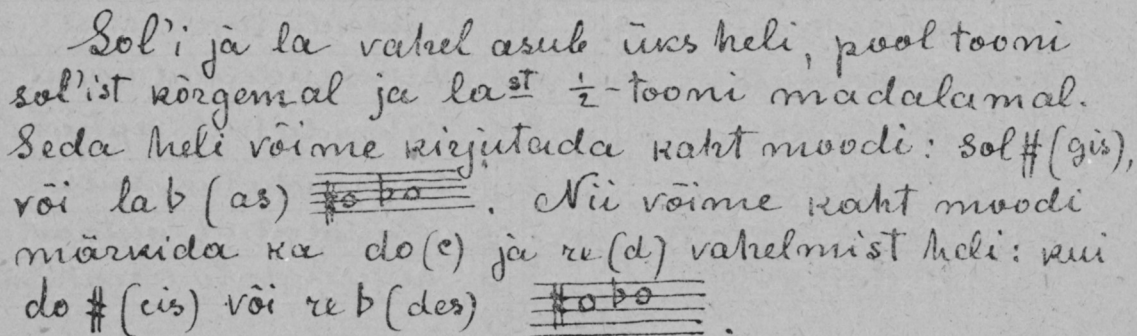 Sol'i ja la vahel asub üks heli, pool tooni
sol'ist kõrgemal ja la st ½-tooni madalamal.
Seda heli võime kirjutada kaht moodi: sol# (gis),
või la♭ (as) #♭. Nii võime kaht moodi
märkida ka do(c) ja re(d) vahelmist heli: kui
do # (cis) või re ♭ (des) #♭.